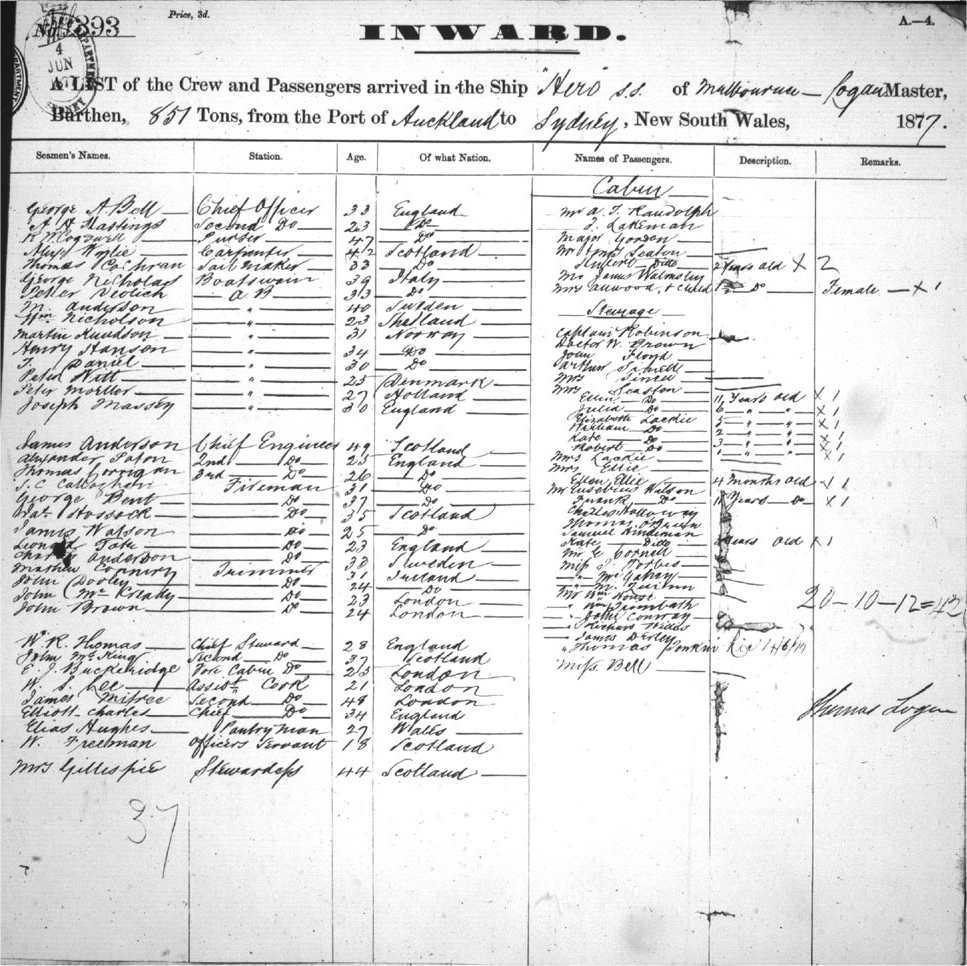 Price, 3d.
A.—4.
No. 393
INWARD.
4
JUN
A LIST of the Crew and Passengers arrived in the Ship "Hero" s.s. of Melbourne — Logan Master,
Burthen, 851 Tons, from the Port of Auckland to Sydney, New South Wales, 1877.
Seamen's Names. Station. Age. Of what Nation. Names of Passengers. Description. Remarks.
Cabin
George A Bell Chief Officer 33 England
Mr A. T. Randolph
Hastings Second Do 23 Do
J. Lakeman
Purser 47 Do
Major Gordon
Alex Wylie Carpenter 42 Scotland
Mr & Mrs Seaton
Thomas Cochran Sail Maker 33 Do
Ditto 2 years old X 2
George Nicholas Boatswain 39 Italy
Mr James Walmsley
Peter A B 33 Do
Mrs Allwood & Child 1 Do Female — X 1
M. Anderson " 40 Sweden
Wm Nicholson " 23 Shetland
Steerage
Martin Knudson " 31 Norway
Captain Robinson
Henry Hanson " 34 Do
Doctor W. Brown
T. Daniel " 30 Do
John Floyd
Peter Witt " 25 Denmark
Arthur
Mrs
Peter Moller " 27 Holland
Mrs Seaston
Joseph Massey " 30 England
Ellen Do 11 Years old X 1
Julia Do 6 " " X 1
Elizabeth Lackie 5 " " X 1
William Do " " X 1
James Anderson Chief Engineer 49 Scotland
Kate Do 3 " " X 1
Robert Do " " X 1
Alexander 2nd Do 25 England
Mrs Lackie
Thomas Corrigan 3rd Do 26 Do
Mrs Ellie
J. C. Callaghan Fireman 31 Do
Ellen Ellie 4 months old X 1
George Bent Do 37 Do
Mr Eusebius Wilson
Frank Do Years Do X 1
Hossock Do 35 Scotland
Charles Holloway
James Watson Do 25 Do
Thomas
Samuel Hindeman
Do 23 England
Kate Ditto years old X 1
Charles Anderson Do 30 Sweden
Mr E. Cornell
Mathew Trimmer 31 Ireland
Miss J. Forbes
John Dooley Do 24 Do
John Do 23 London
Mr Wm House
20—10—12=42
John Brown Do 24 London
" Wm Trimbath
" John Conway
" Richard
W. R. Thomas Chief Steward 28 England
" James
John McKing Second Do 37 Scotland
" Thomas
E. J. Buckeridge Fore Cabin Do 23 London
Miss Bell
W. S. Lee Assist. Cook 21 London
James Second Do 48 London
Elliott Charles Chief Do 34 England
Thomas Logan
Elias Hughes Pantry Man 27 Wales
W. Freeman Officers Servant 18 Scotland
Mrs Gillespie Stewardess 44 Scotland
37